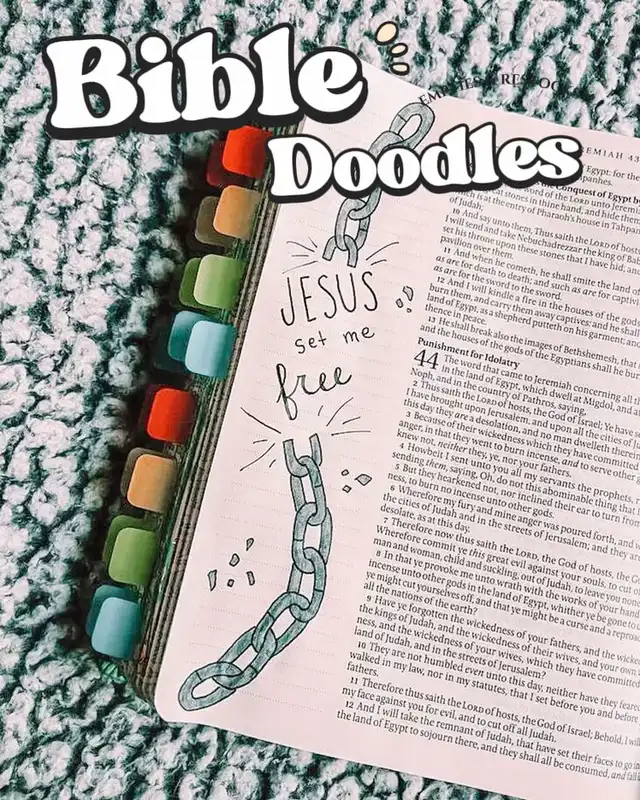 Bible
Doodles
EMIAH 43
Egypt: for the
JESUS
set me
free
of Judah;
10 And say unto them, Thus saith the LORD of hosts
I will send and take Nebuchadrezzar the king of Bab
set his throne upon these stones that I have hid, and
pavilion over them.
11 And when he cometh, he shall smite the land of
as are for death to death; and such as are for captivi
as are for the sword to the sword.
12 And I will kindle a fire in the houses of the god
burn them, and carry them away captives: and he shall
land of Egypt, as a shepherd putteth on his garment; and
thence in peace.
13 He shall break also the images of Bethshemesh, that i
and the houses of the gods of the Egyptians shall he bur
Punishment for Idolatry
44 The word that came to Jeremiah concerning all th
in the land of Egypt, which dwell at Migdol, and a
Noph, and in the country of Pathros, saying,
2 Thus saith the LORD of hosts, the God of Israel; Ye have
I have brought upon Jerusalem, and upon all the cities of J
this day they are a desolation, and no man dwelleth therein
3 Because of their wickedness which they have committed
anger, in that they went to burn incense, and to serve other g
knew not, neither they, ye, nor your fathers.
4 Howbeit I sent unto you all my servants the prophets,
sending them, saying, Oh, do not this abominable thing that
5 But they hearkened not, nor inclined their ear to turn from
ness, to burn no incense unto other gods.
6 Wherefore my fury and mine anger was poured forth, and w
the cities of Judah and in the streets of Jerusalem; and they are
desolate, as at this day.
7 Therefore now thus saith the LORD, the God of hosts, the G
Wherefore commit ye this great evil against your souls, to cut o
man and woman, child and suckling, out of Judah, to leave you non
8 In that ye provoke me unto wrath with the works of your hand
incense unto other gods in the land of Egypt, whither ye be gone to
ye might cut yourselves off, and that ye might be a curse and a repro
all the nations of the earth?
9 Have ye forgotten the wickedness of your fathers, and the wicke
the kings of Judah, and the wickedness of their wives, and your own
ness, and the wickedness of your wives, which they have committed
land of Judah, and in the streets of Jerusalem?
10 They are not humbled even unto this day, neither have they feare
walked in my law, nor in my statutes, that I set before you and before
fathers.
11 Therefore thus saith the LORD of hosts, the God of Israel; Behold, I wi
my face against you for evil, and to cut off all Judah.
12 And I will take the remnant of Judah, that have set their faces to go in
the land of Egypt to sojourn there, and they shall all be consumed, and fall